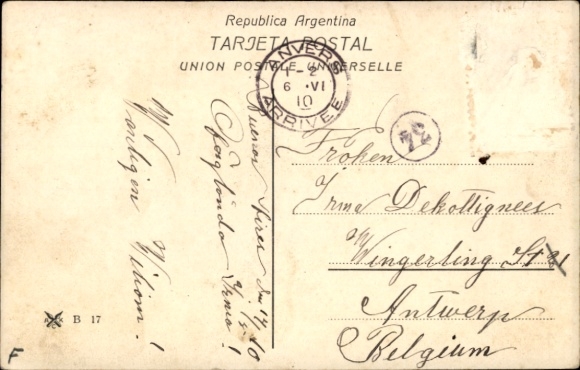 Republica Argentina
TARJETA POSTAL
UNION POSTALE UNIVERSELLE
ANVERS
1-2
6 VI
10
ARRIVEE
Buenos Aires den 17/5 10
Irma!
Fröken
Irma Dekottignees
Wingerling St 21
Antwerp
Belgium
B 17
F